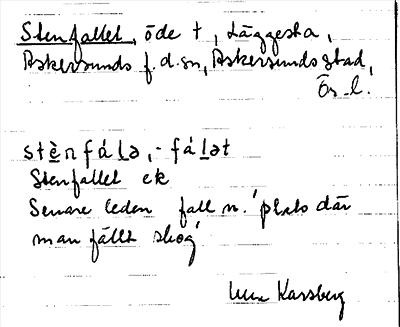 Stenfallet, öde t, Läggesta,
Askersunds f. d. sn, Askersunds stad,
Ös. l.
stènfálə, -fálət
Stenfallet ek
Senare leden fall n. 'plats där
man fällt skog'
Karsberg